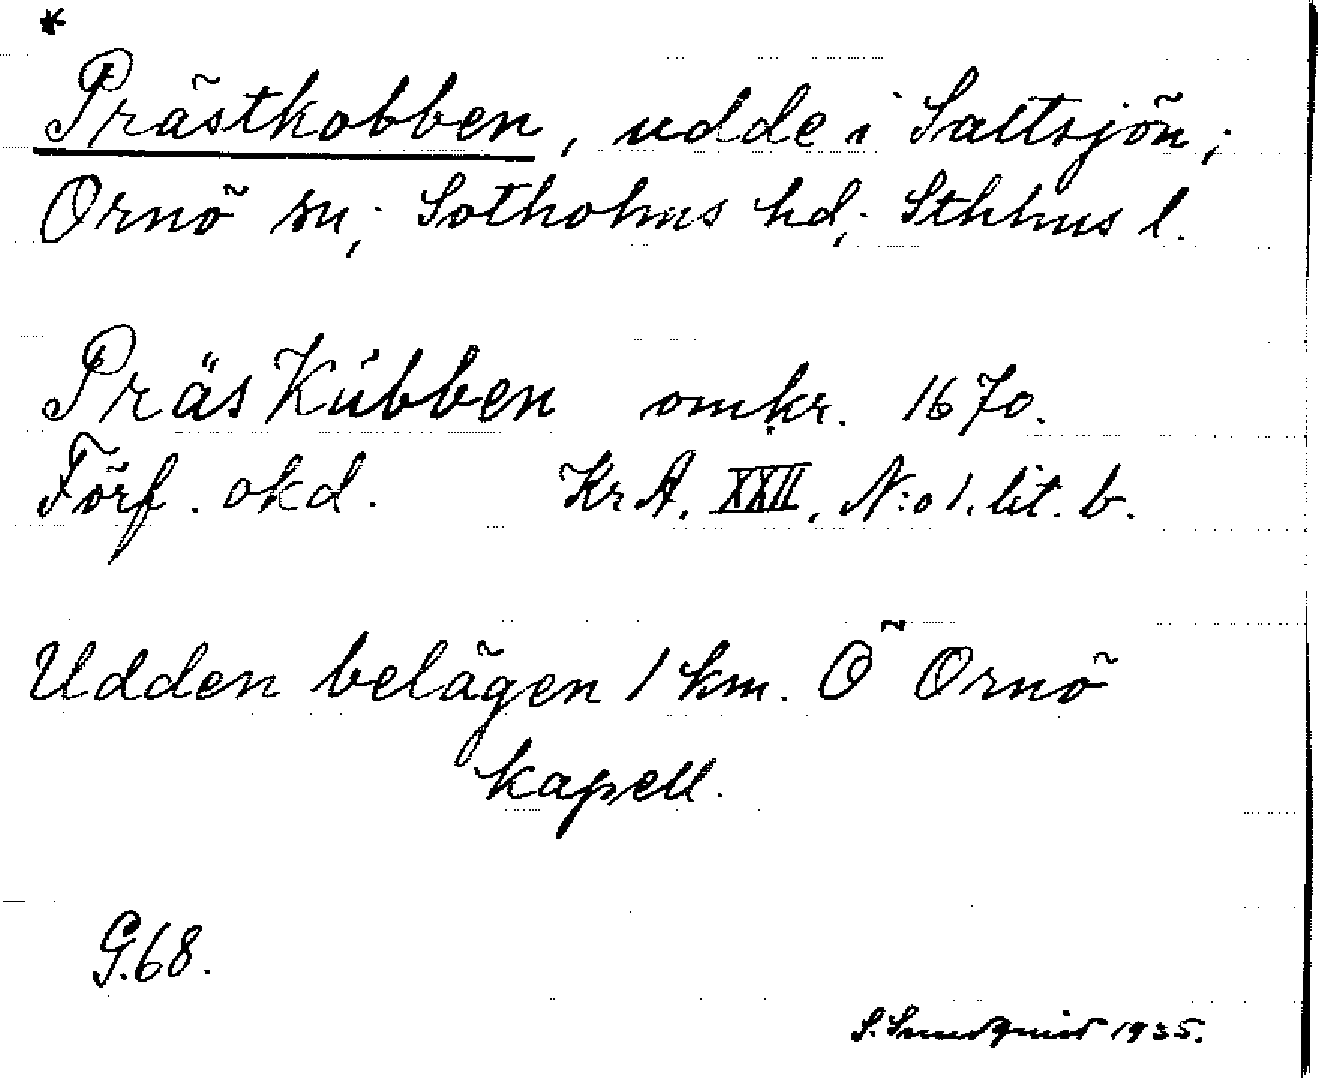 *
Prästkobben, udde i Saltsjön;
Ornö sn; Sotholms hd; Sthlms l.
Präs Kübben omkr. 1670.
Förf. okd. Kr A. XXII. N:o 1. lit. b.
Udden belägen 1 km. Ö Ornö
kapell.
G.68.
S. Sundquist 1935.